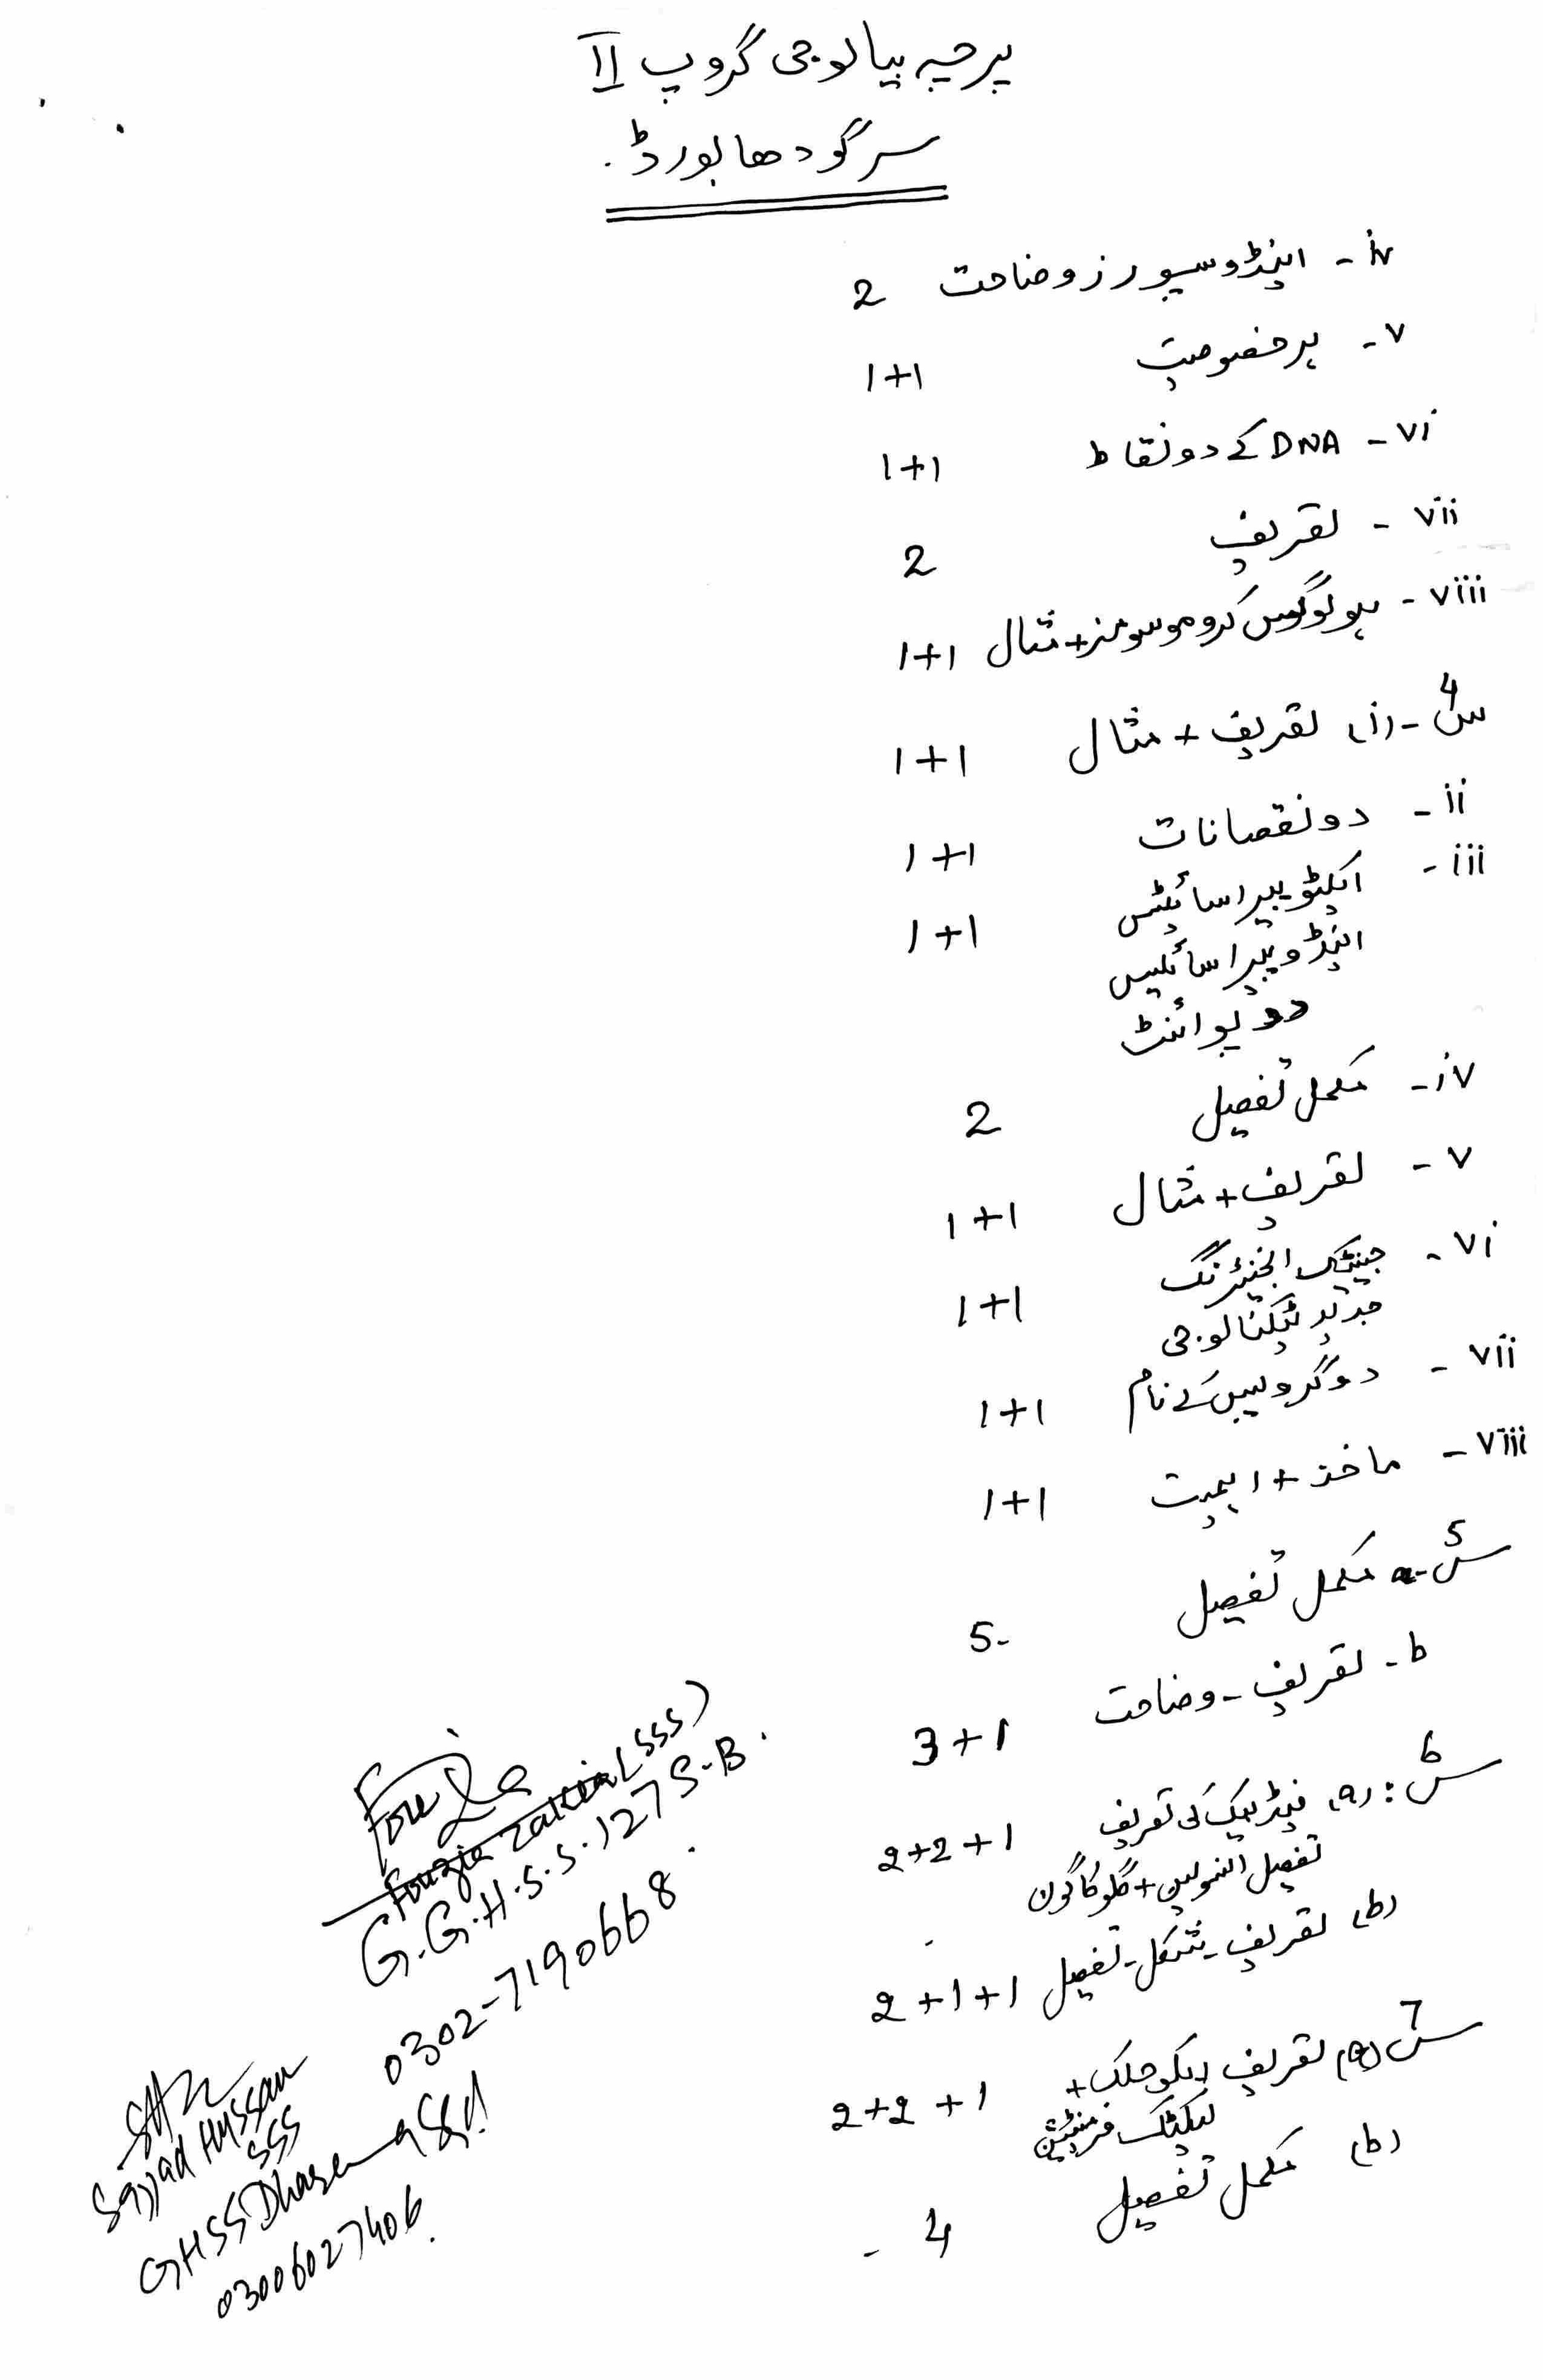 پرچہ بیالوجی گروپ II
سرگودھا بورڈ۔
iv - اینڈوسپورز وضاحت 2
v - ہر خصوصیت 1+1
vi - DNA کے دو نقاط 1+1
vii - تعریف 2
viii - ہومولوگس کروموسومز + مثال 1+1
س4 - (i) تعریف + مثال 1+1
ii - دو نقصانات 1+1
iii - ایکٹوپیراسائیٹس 1+1
اینڈوپیراسائیٹس
دو پوائنٹ
iv - مکمل تفصیل 2
v - تعریف + مثال 1+1
vi - جینیٹک انجینئرنگ 1+1
جدید ٹیکنالوجی
vii - دو گروپس کے نام 1+1
viii - ماخذ + اہمیت 1+1
س5 - a مکمل تفصیل 5
b - تعریف - وضاحت 3+1
س6: (a) فیڈ بیک کی تعریف 2+2+1
تفصیل انسولین + گلوکاگون
(b) تعریف - شکل - تفصیل 2+1+1
س7 (a) تعریف + الکوحلک + 2+2+1
لیکٹک فرمنٹیشن
(b) مکمل تفصیل 4
Fouzia
Fouzia (SSS)
G.G.H.S.S. 127 S.B.
0302-7190668.
Sajjad Hussan
SSS
GHSS
03006027406.